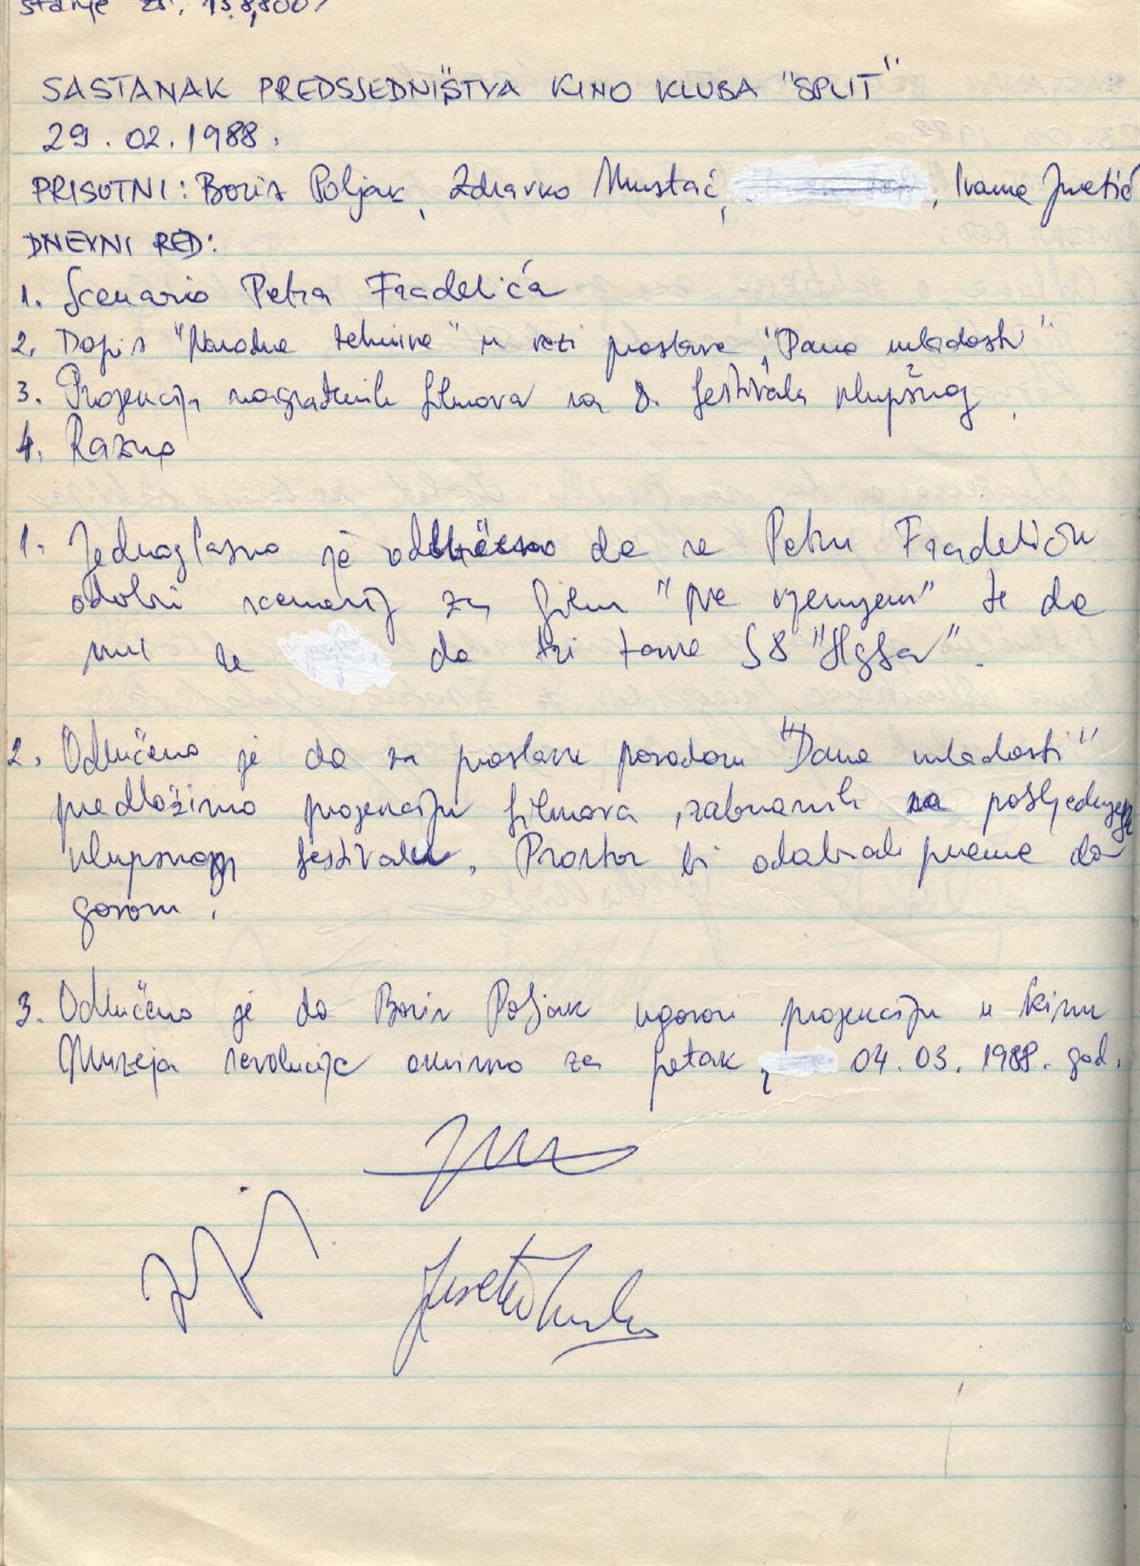 stanje
SASTANAK PREDSJEDNIŠTVA KINO KLUBA "SPLIT"
29.02.1988.
PRISUTNI: Boris Poljak, Zdravko Mustać, , Ivana Jvetić
DNEVNI RED:
1. Scenario Petra Fradelića
2. Dopis "Narodne tehnike" u vezi proslave "Dana mladosti"
3. Projekcija nagrađenih filmova na 8. festivalu klupskog
4. Razno
1. Jednoglasno je odlučeno da se Petru Fradeliću
odobri scenarij za film "Ne vjerujem" te da
mu se da tri trake S8 "Agfa".
2. Odlučeno je da za proslavu povodom "Dana mladosti"
predložimo projekciju filmova izabranih na posljednjem
klupskom festivalu. Prostor bi odabrali prema do
govoru.
3. Odlučeno je da Boris Poljak ugovori projekciju u kinu
Muzeja revolucije okvirno za petak, 04.03.1988. god.